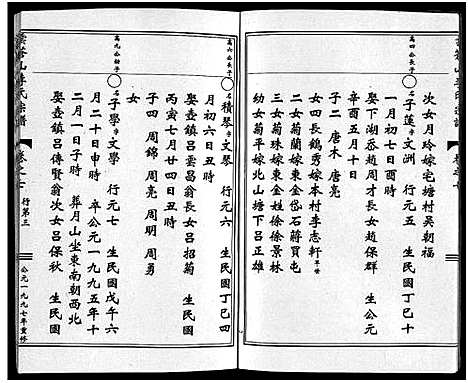 次女月玲嫁宅塘村吴朝福
萬四公長子
名子蓮字文洲 行元七 生民國丁巳十
一月初七日酉時
娶下湖丞趙周才長女趙保群 生公元
辛酉五月十日
子二 唐木 唐亮
女四長鶴秀嫁本村李志軒
次女菊蘭嫁東金岱石蔣茛屯
三女菊珠嫁東金姓徐徐景林
幼女菊平嫁北山下吕正雄
萬六公長子
名積琴字文琴 行元六 生民國丁巳四
月初六日丑時
娶壺鎮吕雲昌翁長女吕招菊 生民國
丙寅七月廿四日戌時
子四 周錦 周亮 周明 周勇
萬九公幼子
名子學字文學 行元七 生民國戊午六
月二十日申時 卒公元一九九五年十
二月初七日 葬月山坐東南朝西北
娶壺鎮吕傳賢翁次女吕保秋 生民國
行第三
公元一九九七年重修